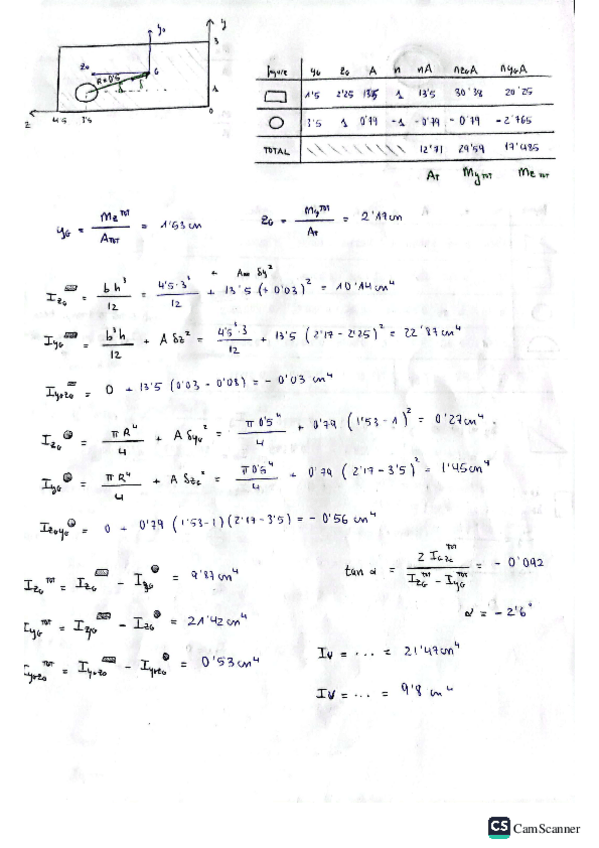 y
y₀
3
z₀
R=0'5
G
1
z
4'5
3'5
0
figure y_G z_G A n nA nz_GA ny_GA
1'5 2'25 13'5 1 13'5 30'38 20'25
3'5 1 0'79 -1 -0'79 -0'79 -2'765
TOTAL 12'71 29'59 17'485
A_T My_TOT Mz_TOT
y_G = Mz^TOT / A_TOT = 1'53 cm
z_G = My^TOT / A_T = 2'17 cm
I_zG = bh³/12 + A δy² = 4'5·3³/12 + 13'5 (+0'03)² = 10'14 cm⁴
I_yG = b³h/12 + A δz² = 4'5³·3/12 + 13'5 (2'17 - 2'25)² = 22'87 cm⁴
I_y₀z₀ = 0 + 13'5 (0'03 - 0'08) = - 0'03 cm⁴
I_zG = πR⁴/4 + A δy_G² = π 0'5⁴/4 + 0'79 (1'53 - 1)² = 0'27 cm⁴.
I_yG = πR⁴/4 + A δz_G² = π 0'5⁴/4 + 0'79 (2'17 - 3'5)² = 1'45 cm⁴
I_z₀y₀ = 0 + 0'79 (1'53-1)(2'17-3'5) = - 0'56 cm⁴
I_zG^TOT = I_zG - I_zG = 9'87 cm⁴
tan α = 2 I_Gz₀^TOT / I_zG^TOT - I_yG^TOT = - 0'092
α = -2'6°
I_yG^TOT = I_yG - I_zG = 21'42 cm⁴
I_y₀z₀^TOT = I_y₀z₀ - I_y₀z₀ = 0'53 cm⁴
I_U = ... = 21'47 cm⁴
I_V = ... = 9'8 cm⁴
CS CamScanner